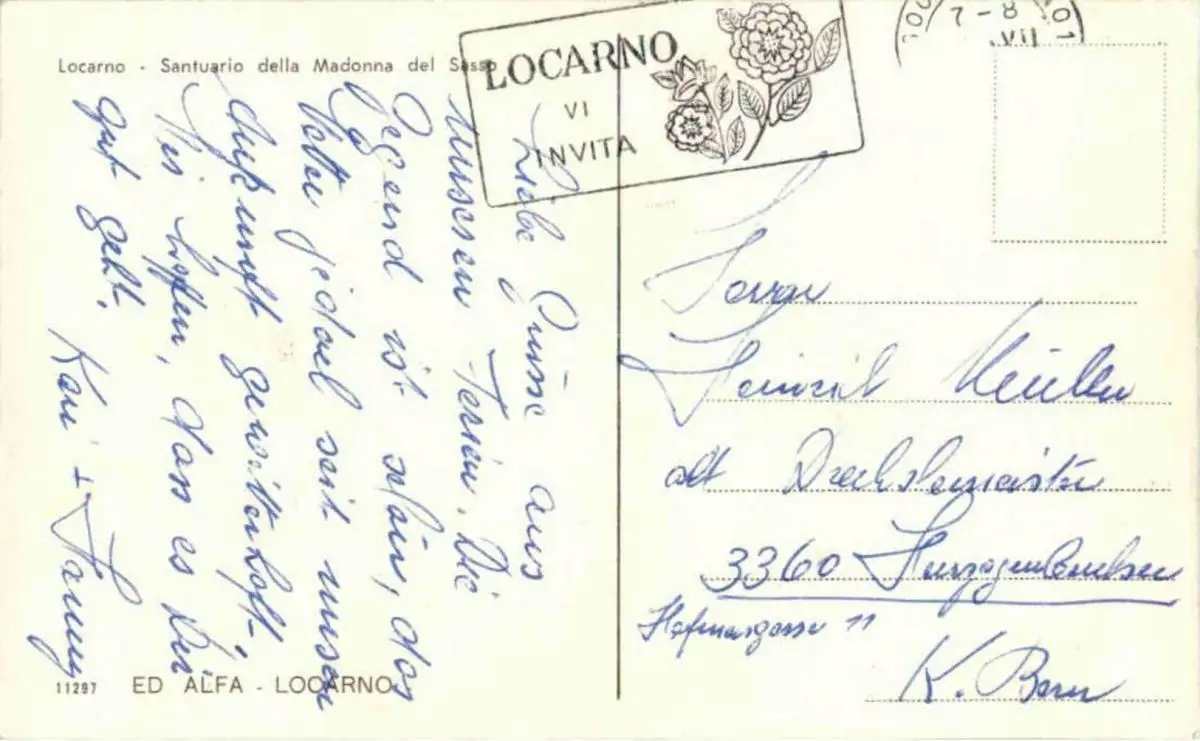 Locarno - Santuario della Madonna del Sasso
LOCARNO
VI
INVITA
7-8
VII
Liebe Grüsse aus
unseren Ferien. Die
Gegend ist schön, das
Wetter jedoch seit unserer
Ankunft gewitterhaft.
Wir hoffen, dass es Dir
gut geht.
+ Fanny
Herrn
Heinrich Müller
alt Drechslermeister
3360 Herzogenbuchsee
11
K. Bern
11297 ED ALFA - LOCARNO